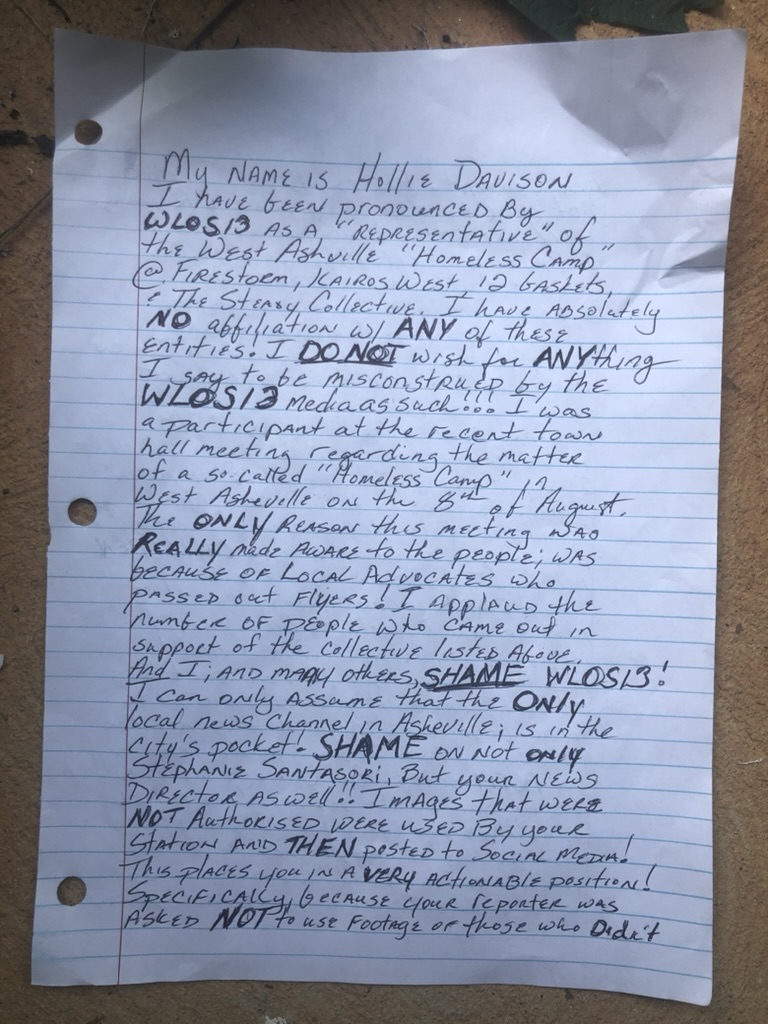 My NAME is Hollie DAVISON
I HAVE been pronounced By
WLOS13 AS A "REPRESENTATIVE" of
the West Ashville "Homeless Camp"
@ FIRESTORM, KAIROS WEST, 12 BASKETS,
& The STEADY Collective. I HAVE Absolutely
NO affiliation w/ ANY of these
entities. I DO NOT wish for ANYthing
I SAY to be misconstrued by the
WLOS13 Media as such!!! I was
a participant at the recent town
hall meeting regarding the matter
of a so-called "Homeless Camp" in
West Asheville on the 8th of August.
The ONLY REASON this meeting was
REALLY made AWARE to the people; WAS
because of Local Advocates who
passed out Flyers! I Applaud the
number OF people who came out in
support of the collective listed Above.
And I; AND many others, SHAME WLOS13!
I can only Assume that the ONLY
local news channel in Asheville; is in the
city's pocket! SHAME ON NOT only
STEPHANIE SANTASORI, But your NEWS
DIRECTOR AS well!! IMAGES that WERE
NOT Authorised WERE used By your
STATION AND THEN posted to Social Media!
This places you in A VERY ACTIONABLE position!
Specifically, because your reporter was
ASKED NOT to use Footage of those who Didn't